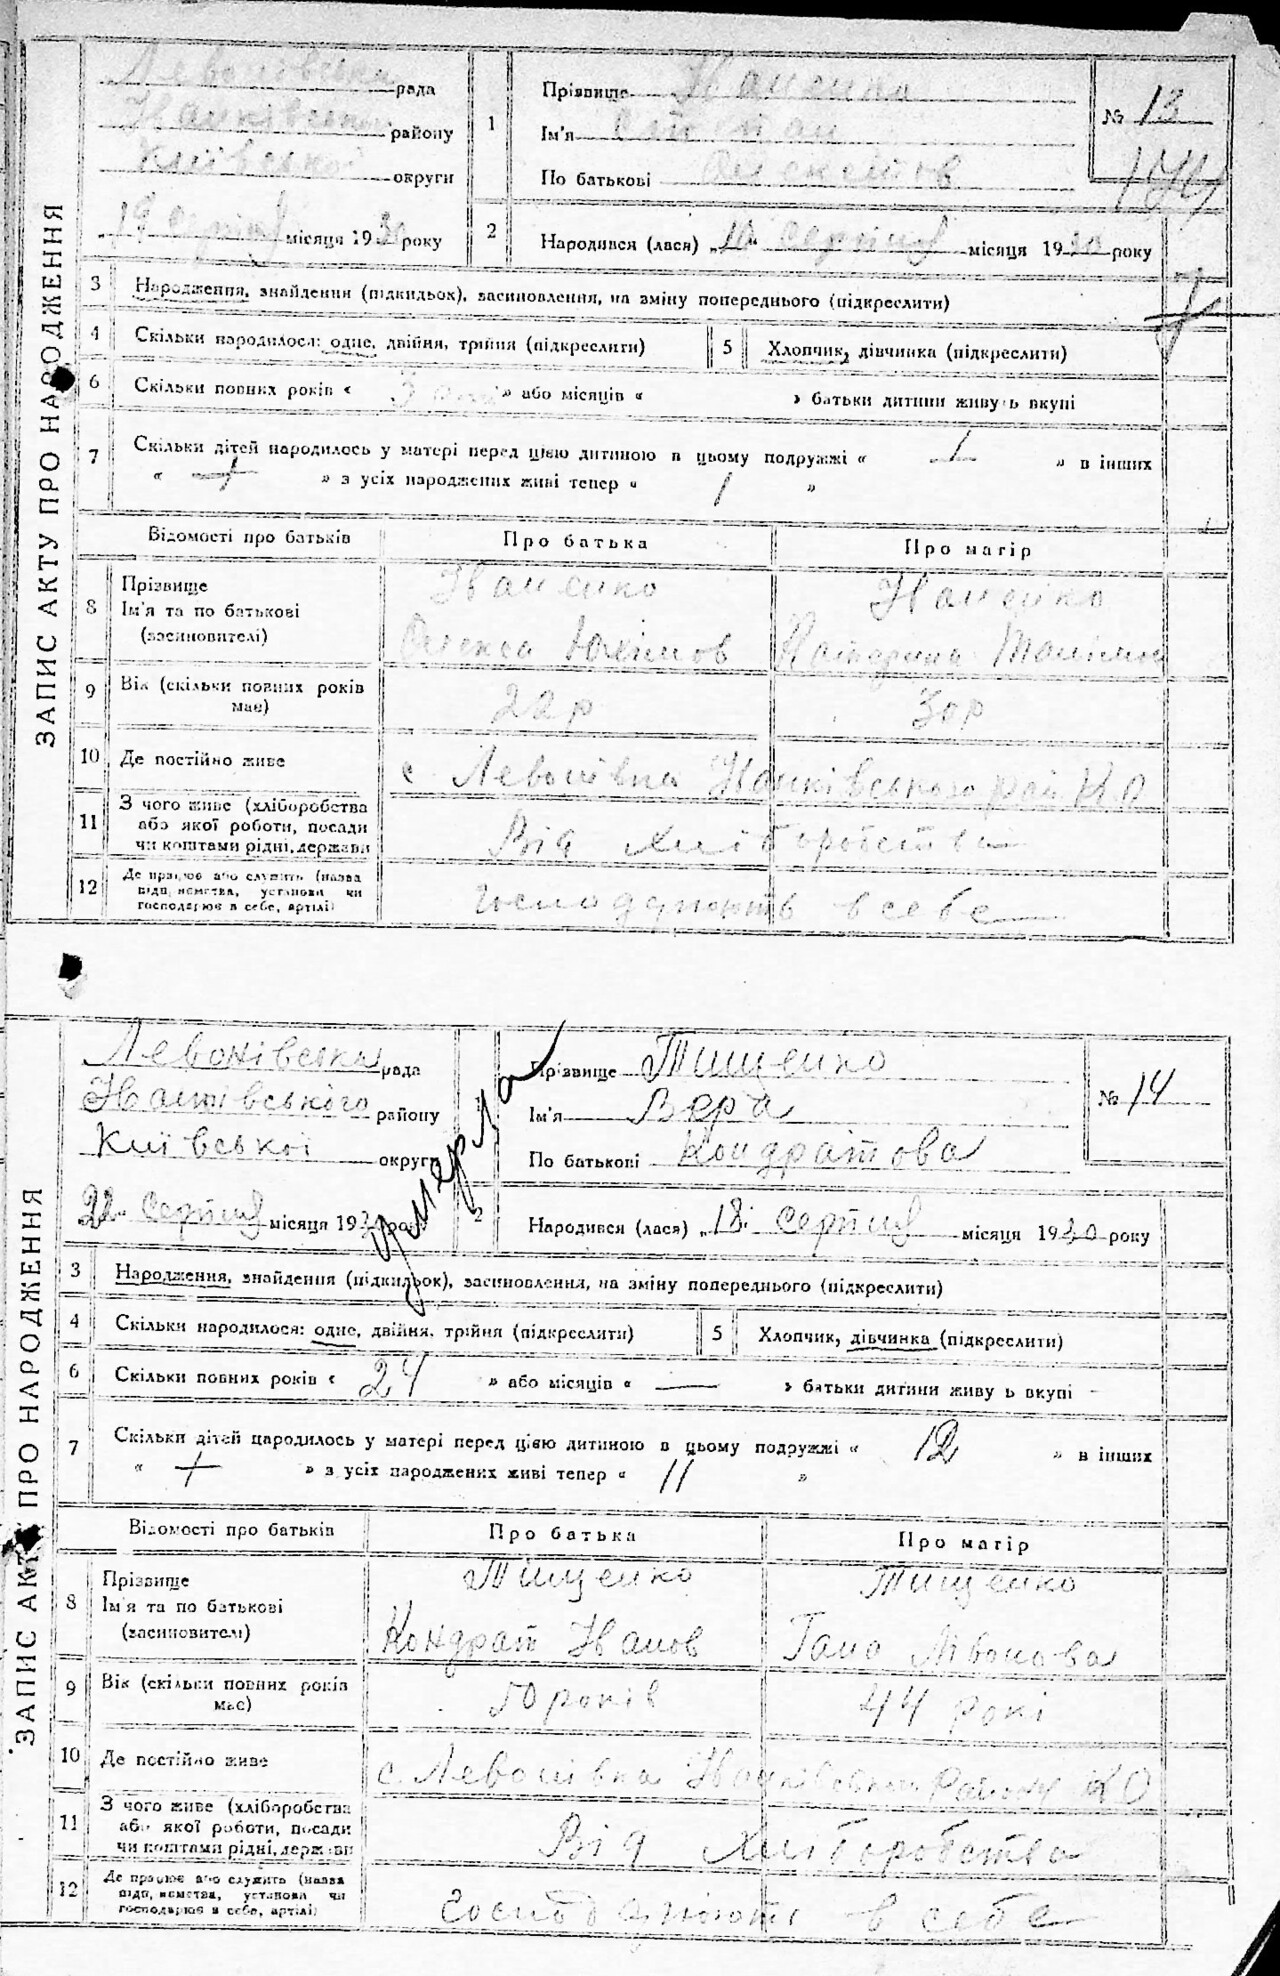 ЗАПИС АКТУ ПРО НАРОДЖЕННЯ
Левонівська рада
району
Київської округи
19 Серпня місяця 1930 року
1
Прізвище
Ім'я Степан
По батькові Олексіїв
№ 13
144
2
Народився (лася) Серпня місяця 1930 року
3 Народження, знайдення (підкидьок), васиновлення, на зміну попереднього (підкреслити)
4 Скільки народилося: одне, двійня, трійня (підкреслити)
5 Хлопчик, дівчинка (підкреслити)
6 Скільки повних років « 3 » або місяців « » батьки дитини живуть вкупі
7 Скільки дітей народилось у матері перед цією дитиною в цьому подружжі « » в інших
« » з усіх народжених живі тепер « 1 »
Відомості про батьків Про батька Про матір
8 Прізвище Іваненко Іваненко
Ім'я та по батькові Олекса Юхимов
(васиновителі)
9 Вік (скільки повних років має) 22 р 30 р
10 Де постійно живе с. Левонівка
11 З чого живе (хліборобства або якої роботи, посади чи коштами рідні, держави Від хліборобства
12 Де працює або служить (назва підприємства, установи чи господарює в себе, артілі) Господарюють в себе
ЗАПИС АКТУ ПРО НАРОДЖЕННЯ
Левонівська рада
району
Київської округи
22 Серпня місяця 1930 року
умерла
Прізвище Тищенко
Ім'я Вера
По батькові Кондратова
№ 14
2
Народився (лася) „18" Серпня місяця 1930 року
3 Народження, знайдення (підкидьок), васиновлення, на зміну попереднього (підкреслити)
4 Скільки народилося: одне, двійня, трійня (підкреслити)
5 Хлопчик, дівчинка (підкреслити)
6 Скільки повних років « 24 » або місяців « — » батьки дитини живуть вкупі
7 Скільки дітей народилось у матері перед цією дитиною в цьому подружжі « 12 » в інших
« » з усіх народжених живі тепер « 11 »
Відомості про батьків Про батька Про матір
8 Прізвище Тищенко Тищенко
Ім'я та по батькові Кондрат Іванов Гана
(васиновителі)
9 Вік (скільки повних років має) 50 років 44 рокі
10 Де постійно живе с. Левонівка району К О
11 З чого живе (хліборобства або якої роботи, посади чи коштами рідні, держави Від хліборобства
12 Де працює або служить (назва підприємства, установи чи господарює в себе, артілі) Господарюють в себе